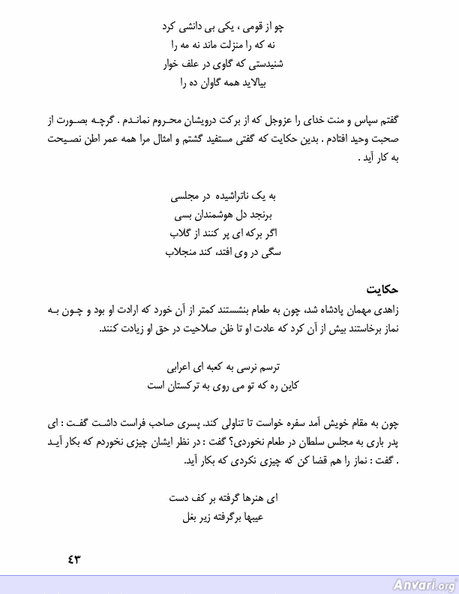 چو از قومی ، یکی بی دانشی کرد
نه که را منزلت ماند نه مه را
شنیدستی که گاوی در علف خوار
بیالاید همه گاوان ده را
گفتم سپاس و منت خدای را عزوجل که از برکت درویشان محروم نماندم . گرچه بصورت از
صحبت وحید افتادم . بدین حکایت که گفتی مستفید گشتم و امثال مرا همه عمر اطن نصیحت
به کار آید .
به یک ناتراشیده در مجلسی
برنجد دل هوشمندان بسی
اگر برکه ای پر کنند از گلاب
سگی در وی افتد، کند منجلاب
حکایت
زاهدی مهمان پادشاه شد، چون به طعام بنشستند کمتر از آن خورد که ارادت او بود و چون به
نماز برخاستند بیش از آن کرد که عادت او تا ظن صلاحیت در حق او زیادت کنند.
ترسم نرسی به کعبه ای اعرابی
کاین ره که تو می روی به ترکستان است
چون به مقام خویش آمد سفره خواست تا تناولی کند. پسری صاحب فراست داشت گفت : ای
پدر باری به مجلس سلطان در طعام نخوردی؟ گفت : در نظر ایشان چیزی نخوردم که بکار آید
. گفت : نماز را هم قضا کن که چیزی نکردی که بکار آید.
ای هنرها گرفته بر کف دست
عیبها برگرفته زیر بغل
٤٣
Anvari.org